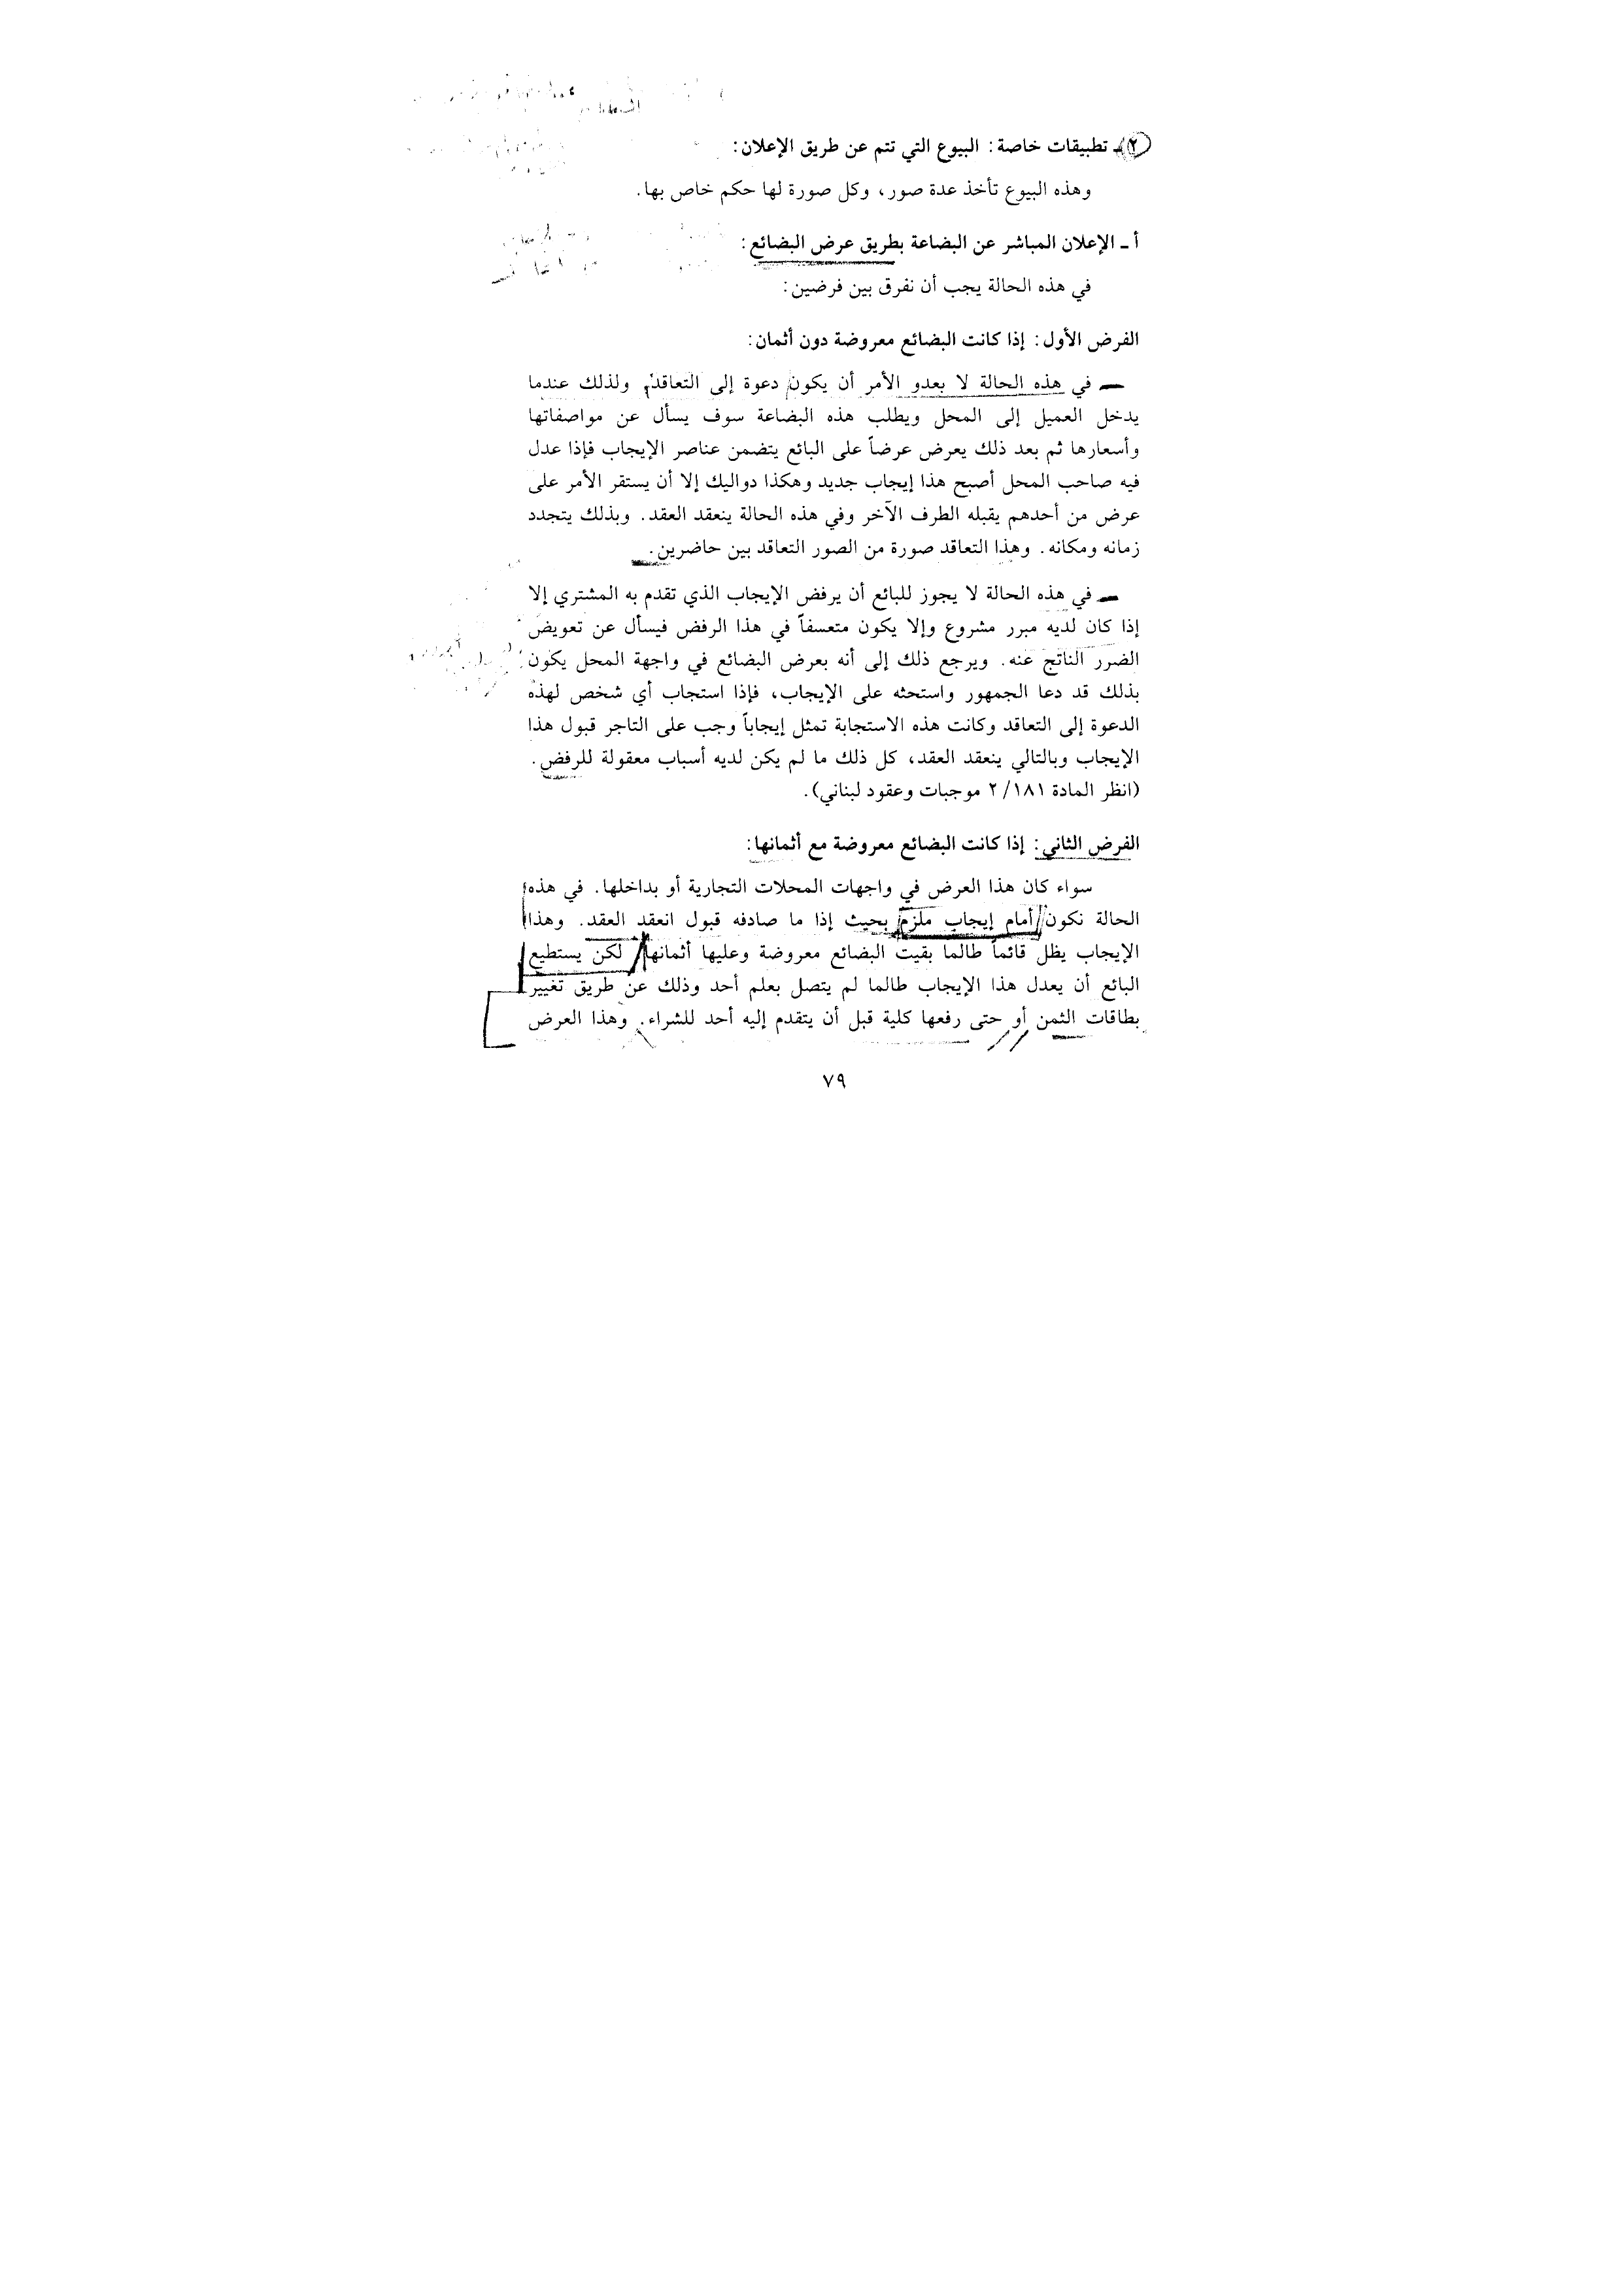 ٢ ـ تطبيقات خاصة: البيوع التي تتم عن طريق الإعلان:
وهذه البيوع تأخذ عدة صور، وكل صورة لها حكم خاص بها.
أ ـ الإعلان المباشر عن البضاعة بطريق عرض البضائع:
في هذه الحالة يجب أن نفرق بين فرضين:
الفرض الأول: إذا كانت البضائع معروضة دون أثمان:
ـ في هذه الحالة لا بعدو الأمر أن يكون دعوة إلى التعاقد، ولذلك عندما
يدخل العميل إلى المحل ويطلب هذه البضاعة سوف يسأل عن مواصفاتها
وأسعارها ثم بعد ذلك يعرض عرضاً على البائع يتضمن عناصر الإيجاب فإذا عدل
فيه صاحب المحل أصبح هذا إيجاب جديد وهكذا دواليك إلا أن يستقر الأمر على
عرض من أحدهم يقبله الطرف الآخر وفي هذه الحالة ينعقد العقد. وبذلك يتجدد
زمانه ومكانه. وهذا التعاقد صورة من الصور التعاقد بين حاضرين.
ـ في هذه الحالة لا يجوز للبائع أن يرفض الإيجاب الذي تقدم به المشتري إلا
إذا كان لديه مبرر مشروع وإلا يكون متعسفاً في هذا الرفض فيسأل عن تعويض
الضرر الناتج عنه. ويرجع ذلك إلى أنه بعرض البضائع في واجهة المحل يكون
بذلك قد دعا الجمهور واستحثه على الإيجاب، فإذا استجاب أي شخص لهذه
الدعوة إلى التعاقد وكانت هذه الاستجابة تمثل إيجاباً وجب على التاجر قبول هذا
الإيجاب وبالتالي ينعقد العقد، كل ذلك ما لم يكن لديه أسباب معقولة للرفض.
(انظر المادة ١٨١/ ٢ موجبات وعقود لبناني).
الفرض الثاني: إذا كانت البضائع معروضة مع أثمانها:
سواء كان هذا العرض في واجهات المحلات التجارية أو بداخلها. في هذه
الحالة نكون أمام إيجاب ملزم بحيث إذا ما صادفه قبول انعقد العقد. وهذا
الإيجاب يظل قائماً طالما بقيت البضائع معروضة وعليها أثمانها لكن يستطيع
البائع أن يعدل هذا الإيجاب طالما لم يتصل بعلم أحد وذلك عن طريق تغيير
بطاقات الثمن أو حتى رفعها كلية قبل أن يتقدم إليه أحد للشراء. وهذا العرض
٧٩